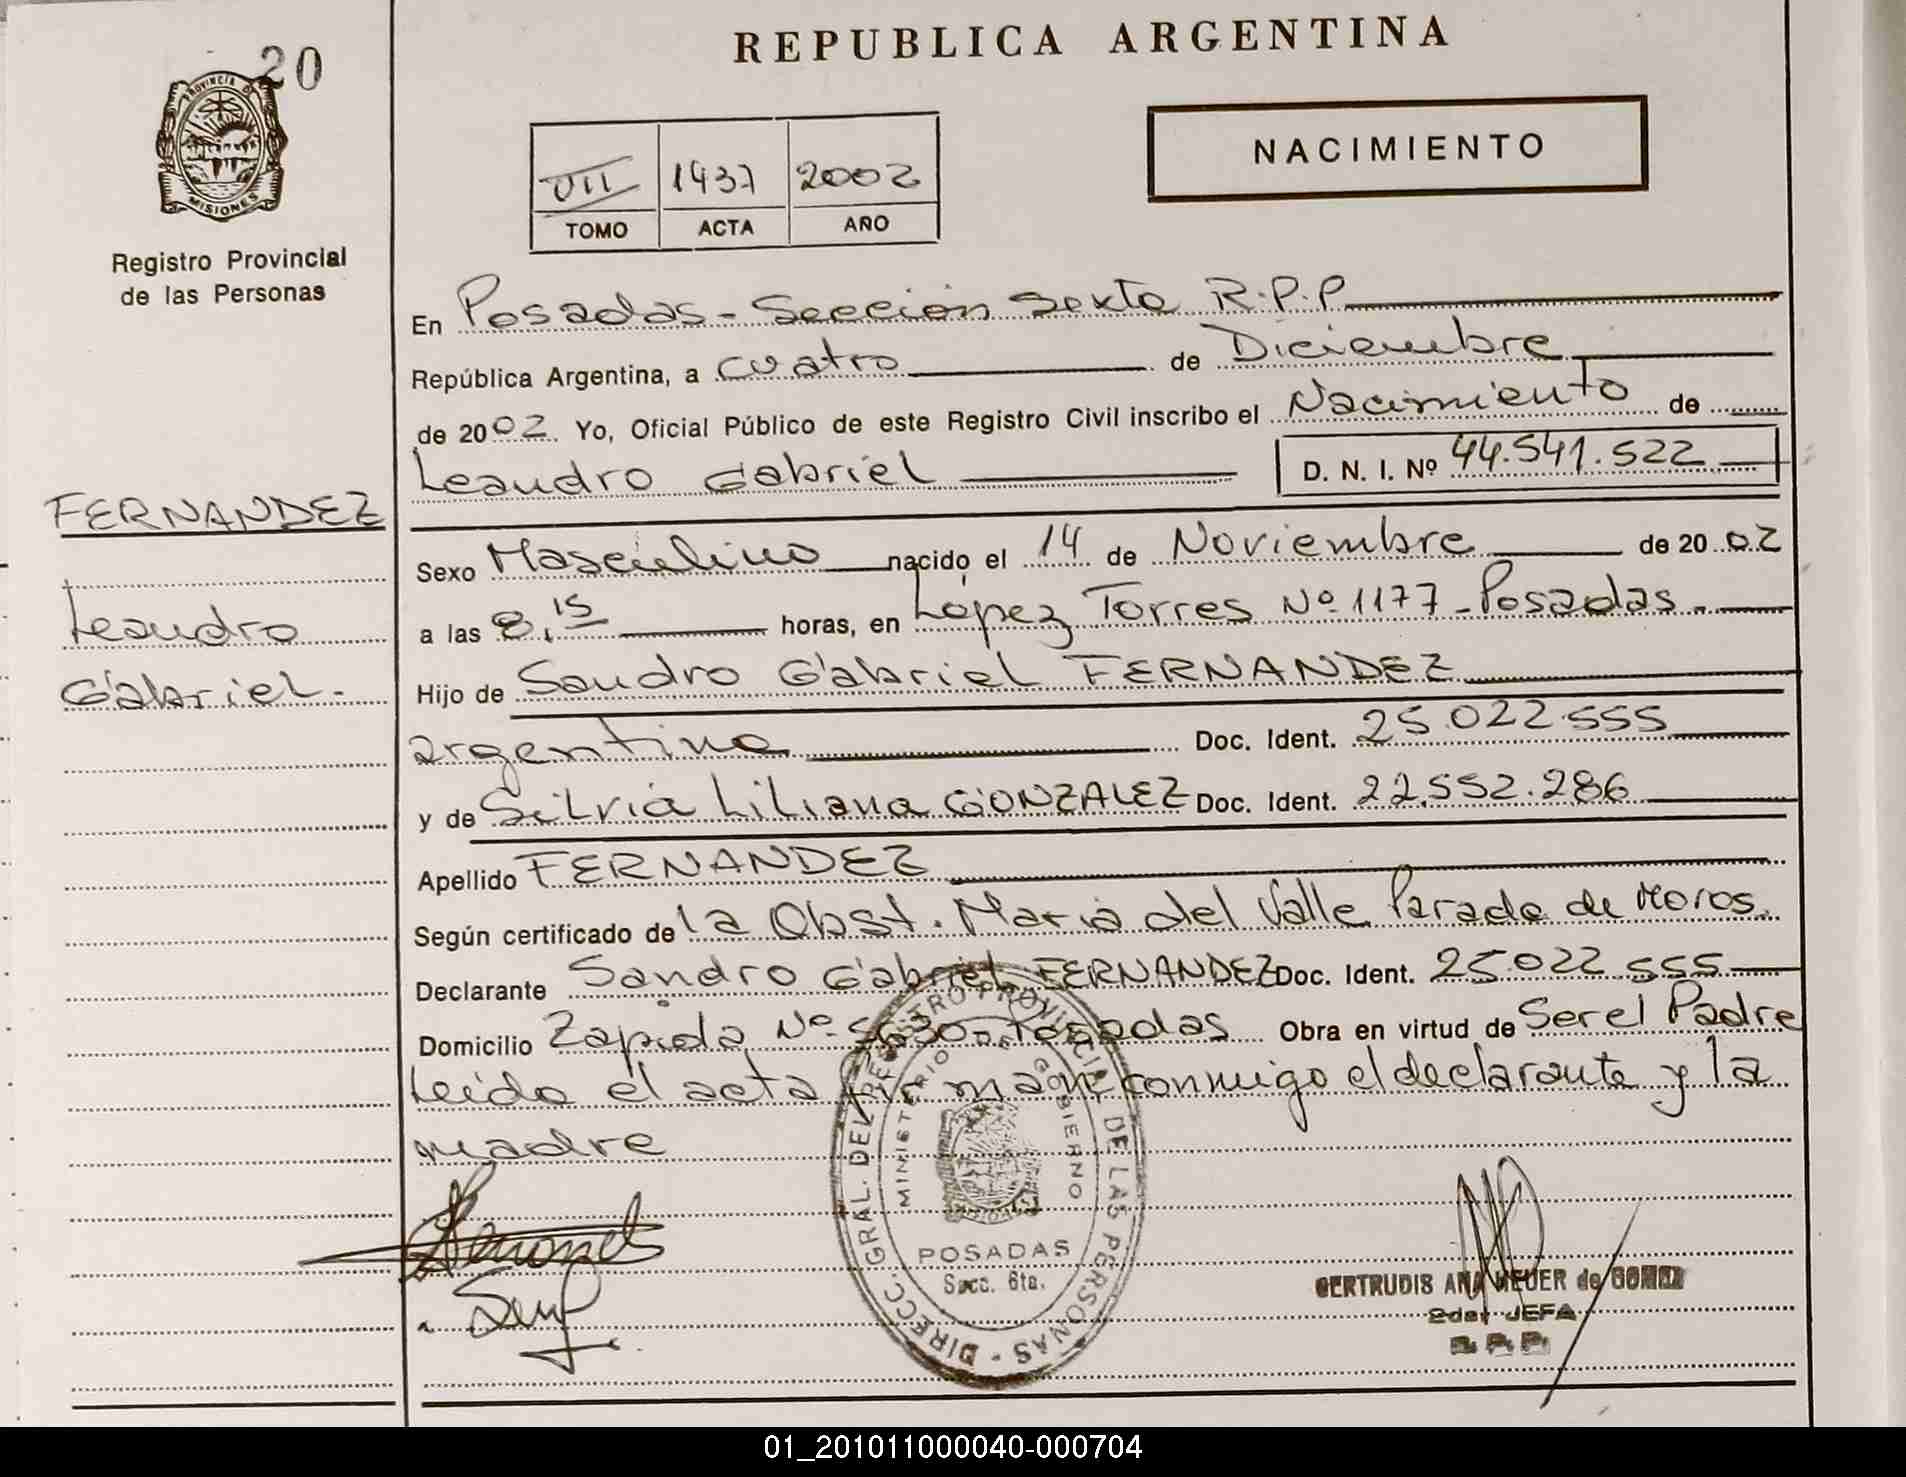 REPUBLICA ARGENTINA
20
PROVINCIA DE
MISIONES
Registro Provincial
de las Personas
NACIMIENTO
VII 1437 2002
TOMO ACTA AÑO
En Posadas - Sección Sexta R.P.P.
República Argentina, a cuatro de Diciembre
de 2002. Yo, Oficial Público de este Registro Civil inscribo el Nacimiento de
Leandro Gabriel D. N. I. Nº 44.541.522
FERNANDEZ
Leandro
Gabriel.-
Sexo Masculino nacido el 14 de Noviembre de 2002
a las 8,15 horas, en López Torres Nº 1177 - Posadas.
Hijo de Sandro Gabriel FERNANDEZ
argentino Doc. Ident. 25.022.555
y de Silvia Liliana GONZALEZ Doc. Ident. 22.552.286
Apellido FERNANDEZ
Según certificado de la Obst. Maria del Valle Parada de Moros.
Declarante Sandro Gabriel FERNANDEZ Doc. Ident. 25.022.555
Domicilio Zapiola Nº 5630 - Posadas Obra en virtud de Ser el Padre
Leida el acta firman conmigo el declarante y la
madre
DIRECC. GRAL. DEL REGISTRO PROVINCIAL DE LAS PERSONAS
MINISTERIO DE GOBIERNO
POSADAS
Secc. 6ta.
GERTRUDIS ANA MEUER de GOMEZ
2da. JEFA
R.P.P.
01_201011000040-000704